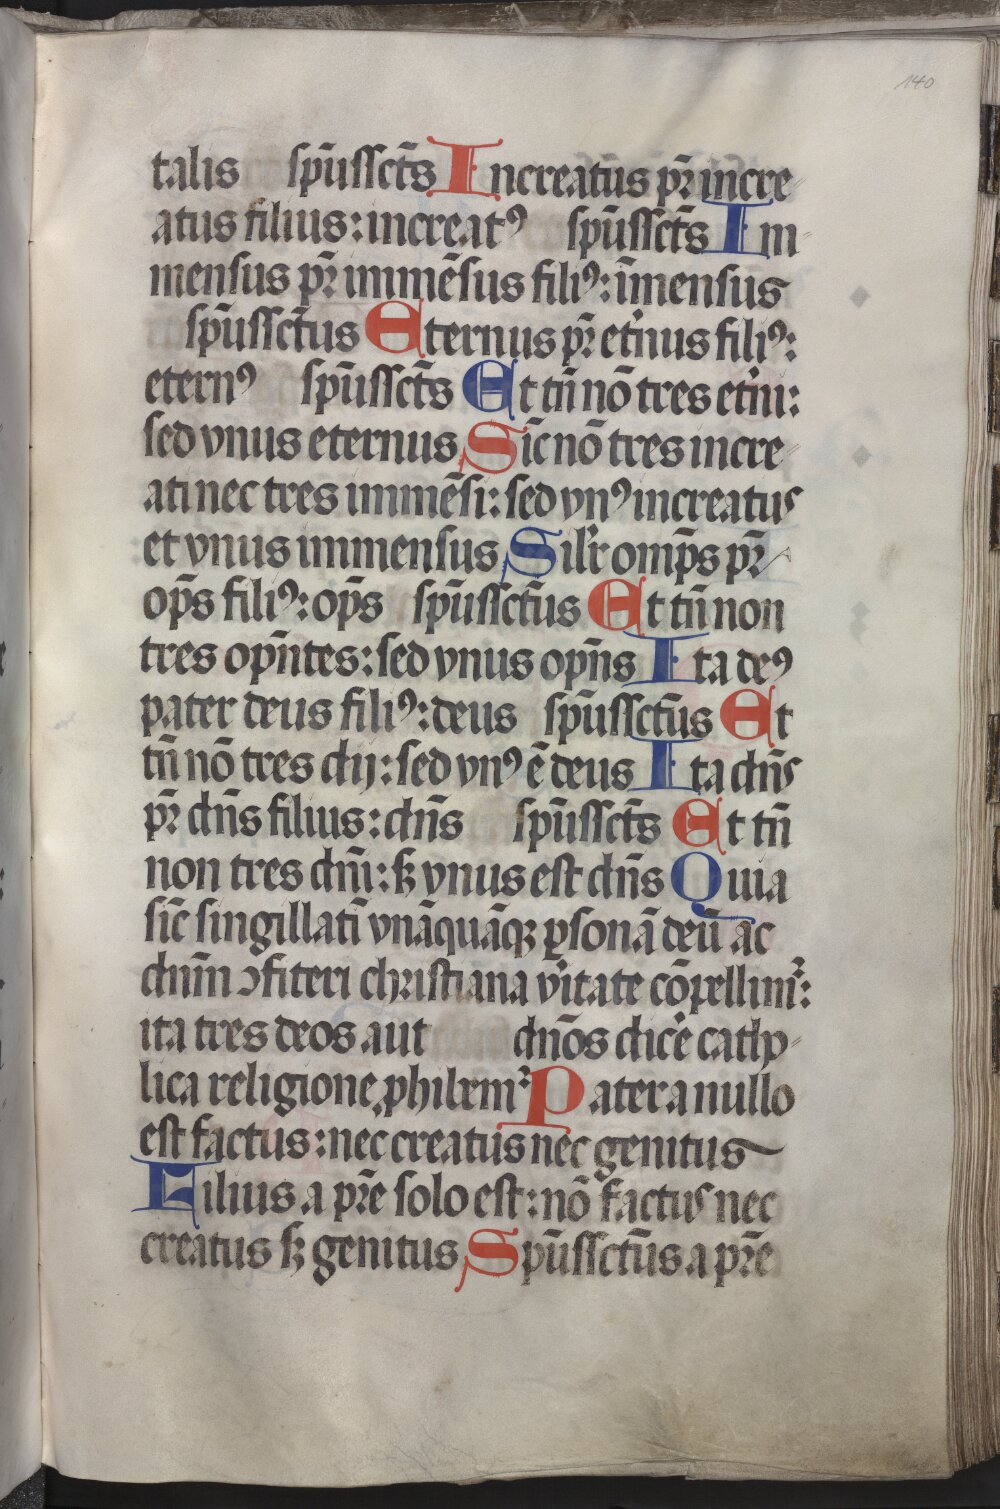 140
talis spūssct̄s Increatus pr̄ incre-
atus filius: increatꝰ spūssct̄s Im-
mensus pr̄ immēsus filiꝰ: īmensus
spūssctūs Eternus pr̄ et'nus filiꝰ:
eternꝰ spūssct̄s Et tn̄ nō tres et'ni:
sed vnus eternus Sic̄ nō tres incre-
ati nec tres immēsi: sed vnꝰ increatus
et vnus immensus Sil'r omp̄s pr̄
op̄s filiꝰ: op̄s spūssctūs Et tn̄ non
tres opn̄tes: sed vnus opn̄s Ita deꝰ
pater deus filiꝰ: deus spūssctūs Et
tn̄ nō tres dij: sed vnꝰ ē deus Ita dn̄s
pr̄ dn̄s filius: dn̄s spūssct̄s Et tn̄
non tres dn̄i: sꝫ vnus est dn̄s Quia
sic̄ singillatī vnāquāqꝫ ꝑsonā deū ac
dn̄m ꝯfiteri christiana v'itate cōpellimꝰ:
ita tres deos aut dn̄os dic'e catho-
lica religione phibemꝰ Pater a nullo
est factus: nec creatus nec genitus
Filius a pr̄e solo est: nō factus nec
creatus sꝫ genitus Spūssctūs a pr̄e